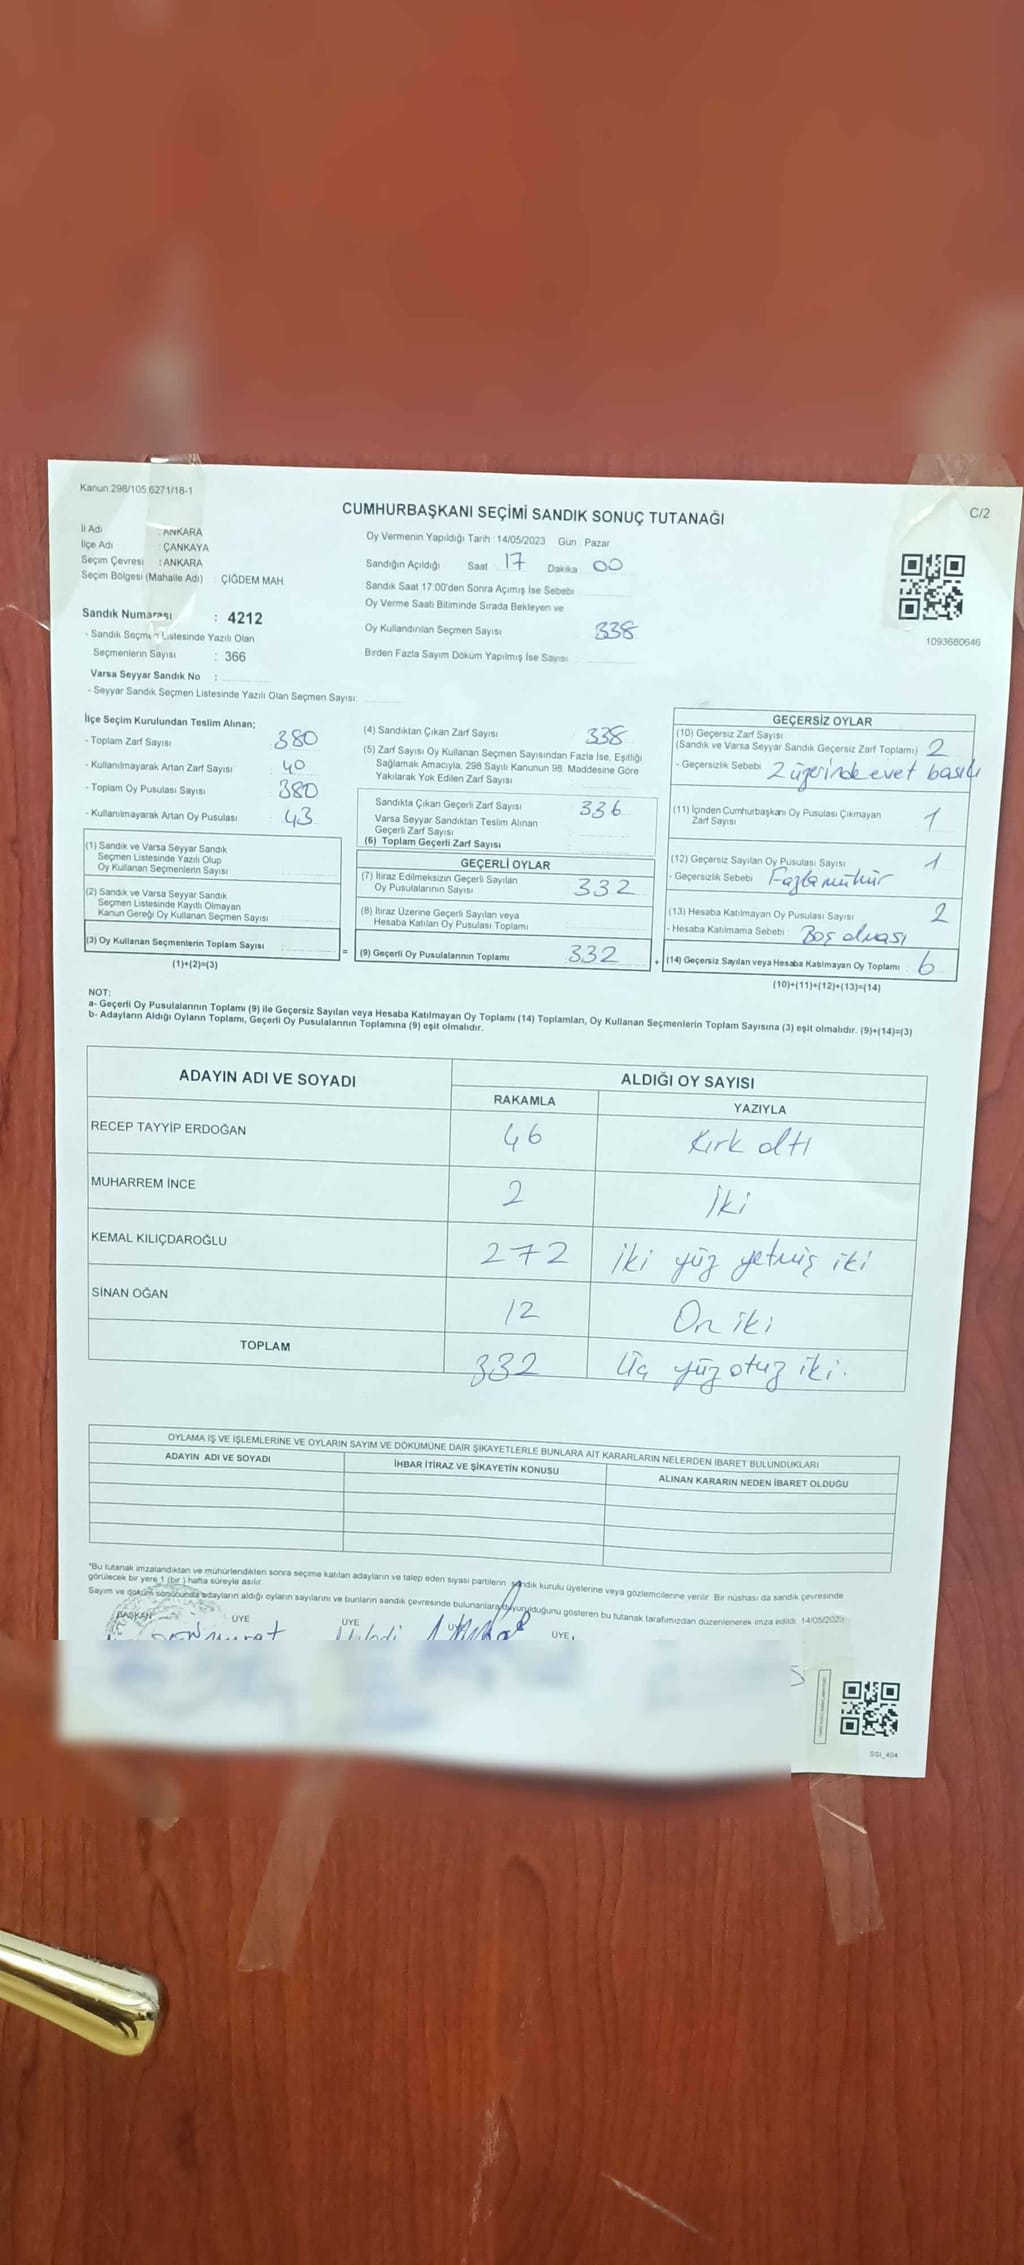 Kanun:298/105 6271/18-1
CUMHURBAŞKANI SEÇİMİ SANDIK SONUÇ TUTANAĞI
C/2
İl Adı : ANKARA
İlçe Adı : ÇANKAYA
Seçim Çevresi : ANKARA
Seçim Bölgesi (Mahalle Adı) : ÇİĞDEM MAH.
Sandık Numarası : 4212
- Sandık Seçmen Listesinde Yazılı Olan
Seçmenlerin Sayısı : 366
Varsa Seyyar Sandık No :
- Seyyar Sandık Seçmen Listesinde Yazılı Olan Seçmen Sayısı:
Oy Vermenin Yapıldığı Tarih : 14/05/2023 Gün Pazar
Sandığın Açıldığı Saat 17 Dakika 00
Sandık Saat 17.00'den Sonra Açımış İse Sebebi
Oy Verme Saati Bitiminde Sırada Bekleyen ve
Oy Kullandırılan Seçmen Sayısı 338
Birden Fazla Sayım Döküm Yapılmış İse Sayısı
1093680646
İlçe Seçim Kurulundan Teslim Alınan;
- Toplam Zarf Sayısı : 380
- Kullanılmayarak Artan Zarf Sayısı : 40
- Toplam Oy Pusulası Sayısı : 380
- Kullanılmayarak Artan Oy Pusulası : 43
(1) Sandık ve Varsa Seyyar Sandık
Seçmen Listesinde Yazılı Olup
Oy Kullanan Seçmenlerin Sayısı
(2) Sandık ve Varsa Seyyar Sandık
Seçmen Listesinde Kayıtlı Olmayan
Kanun Gereği Oy Kullanan Seçmen Sayısı
(3) Oy Kullanan Seçmenlerin Toplam Sayısı :
(1)+(2)=(3)
=
(4) Sandıktan Çıkan Zarf Sayısı 338
(5) Zarf Sayısı Oy Kullanan Seçmen Sayısından Fazla İse, Eşitliği
Sağlamak Amacıyla, 298 Sayılı Kanunun 98. Maddesine Göre
Yakılarak Yok Edilen Zarf Sayısı
Sandıkta Çıkan Geçerli Zarf Sayısı 336
Varsa Seyyar Sandıktan Teslim Alınan
Geçerli Zarf Sayısı
(6) Toplam Geçerli Zarf Sayısı
GEÇERLİ OYLAR
(7) İtiraz Edilmeksizin Geçerli Sayılan
Oy Pusulalarının Sayısı 332
(8) İtiraz Üzerine Geçerli Sayılan veya
Hesaba Katılan Oy Pusulası Toplamı
(9) Geçerli Oy Pusulalarının Toplamı 332
+
GEÇERSİZ OYLAR
(10) Geçersiz Zarf Sayısı
(Sandık ve Varsa Seyyar Sandık Geçersiz Zarf Toplamı) 2
- Geçersizlik Sebebi 2 üzerinde evet basılı
(11) İçinden Cumhurbaşkanı Oy Pusulası Çıkmayan
Zarf Sayısı 1
(12) Geçersiz Sayılan Oy Pusulası Sayısı 1
- Geçersizlik Sebebi Fazla mühür
(13) Hesaba Katılmayan Oy Pusulası Sayısı 2
- Hesaba Katılmama Sebebi Boş olması
(14) Geçersiz Sayılan veya Hesaba Katılmayan Oy Toplamı : 6
(10)+(11)+(12)+(13)=(14)
NOT:
a- Geçerli Oy Pusulalarının Toplamı (9) ile Geçersiz Sayılan veya Hesaba Katılmayan Oy Toplamı (14) Toplamları, Oy Kullanan Seçmenlerin Toplam Sayısına (3) eşit olmalıdır. (9)+(14)=(3)
b- Adayların Aldığı Oyların Toplamı, Geçerli Oy Pusulalarının Toplamına (9) eşit olmalıdır.
ADAYIN ADI VE SOYADI ALDIĞI OY SAYISI
RAKAMLA YAZIYLA
RECEP TAYYİP ERDOĞAN 46 Kırk altı
MUHARREM İNCE 2 İki
KEMAL KILIÇDAROĞLU 272 İki yüz yetmiş iki
SİNAN OĞAN 12 On iki
TOPLAM 332 Üç yüz otuz iki.
OYLAMA İŞ VE İŞLEMLERİNE VE OYLARIN SAYIM VE DÖKÜMÜNE DAİR ŞİKAYETLERLE BUNLARA AİT KARARLARIN NELERDEN İBARET BULUNDUKLARI
ADAYIN ADI VE SOYADI İHBAR İTİRAZ VE ŞİKAYETİN KONUSU ALINAN KARARIN NEDEN İBARET OLDUĞU
*Bu tutanak imzalandıktan ve mühürlendikten sonra seçime katılan adayların ve talep eden siyasi partilerin, sandık kurulu üyelerine veya gözlemcilerine verilir. Bir nushası da sandık çevresinde
görülecek bir yere 1 (bir ) hafta süreyle asılır.
Sayım ve döküm sonucunda adayların aldığı oyların sayılarını ve bunların sandık çevresinde bulunanlara duyurulduğunu gösteren bu tutanak tarafımızdan düzenlenerek imza edildi. 14/05/2023
BAŞKAN ÜYE ÜYE ÜYE ÜYE
SSI_404